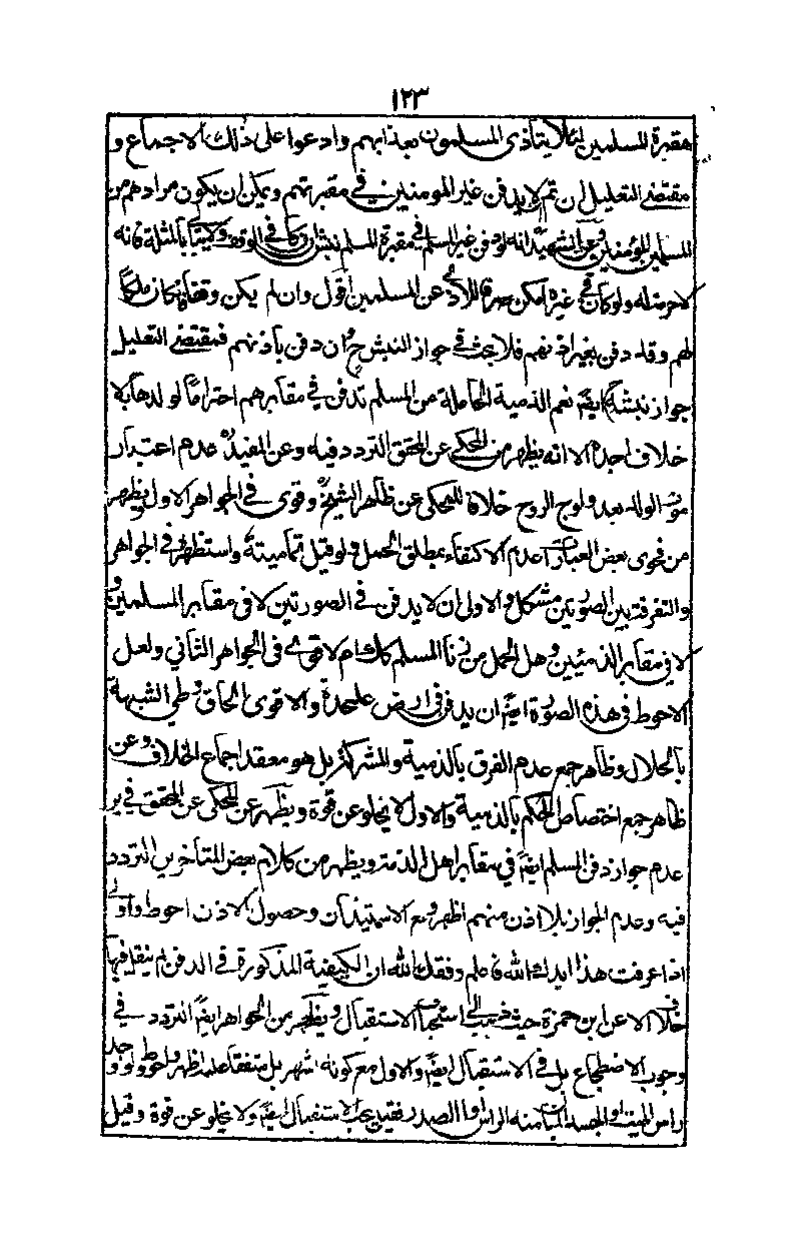 ١٢٣
مقبرة المسلمين لئلا يتأذى المسلمون بعذابهم وادعوا على ذلك الاجماع و
مقتضى التعليل ان تم لا يدفن غير المومنين في مقبرتهم ويمكن ان يكون مرادهم من
المسلمين المؤمنين وعن الشهيد انه لو دفن غير المسلم في مقبرة المسلم نبش ان كان في الوقف ولا يبالى بالمثلة فانه
لا حرمة له ولو كان في غيره امكن صرفا للاذى عن المسلمين اقول وان لم يكن وقفا وكان ملكا
لهم وقد دفن بغير اذنهم فلا بحث في جواز النبش ح وان دفن باذنهم فمقتضى التعليل
جواز نبشه ايضا نعم الذمية الحاملة من المسلم تدفن في مقابرهم احتراما لولدها بلا
خلاف اجده الا انه يظهر من المحكي عن المحقق التردد فيه وعن المفيد عدم اعتبار
موت الولد بعد ولوج الروح خلافا للمحكى عن ظاهر الشيخ وقوى في الجواهر الاول ويظهر
من فحوى بعض العبارات عدم الاكتفاء بمطلق الحمل ولو قبل تماميته واستظهره في الجواهر
والتفرقة بين الصورتين مشكل والاولى ان لا يدفن في الصورتين لا في مقابر المسلمين و
لا في مقابر الذميين وهل الحمل من زنا المسلم كك ام لا قوى في الجواهر الثاني ولعل
الاحوط في هذه الصورة ايضا ان يدفن في ارض علىحدة والاقوى الحاق وطي الشبهة
بالحلال وظاهر جمع عدم الفرق بالذمية والمشركة بل هو معقد اجماع الخلاف وعن
ظاهر جمع اختصاص الحكم بالذمية والاول لا يخلو عن قوة ويظهر عن المحكى عن المحقق في
عدم جواز دفن المسلم ايضا في مقابر اهل الذمة ويظهر من كلام بعض المتأخرين التردد
فيه وعدم الجواز بلا اذن منهم اظهر ومع الاستيذان وحصول الاذن احوط واولى
اذا عرفت هذا ايدك الله فاعلم وفقك الله ان الكيفية المذكورة في الدفن لم ينقل فيها
خلاف الا عن ابن حمزة حيث ذهب الى استحباب الاستقبال ويظهر من الجواهر ايضا التردد في
وجوب الاضطجاع بل في الاستقبال ايضا والاول مع كونه اشهر بل متفقا عليه اظهر واحوط ولو وجد
راس الميت او الجسد البائن منه الراس او الصدر فقيل يجب الاستقبال ايضا ولا يخلو عن قوة وقيل